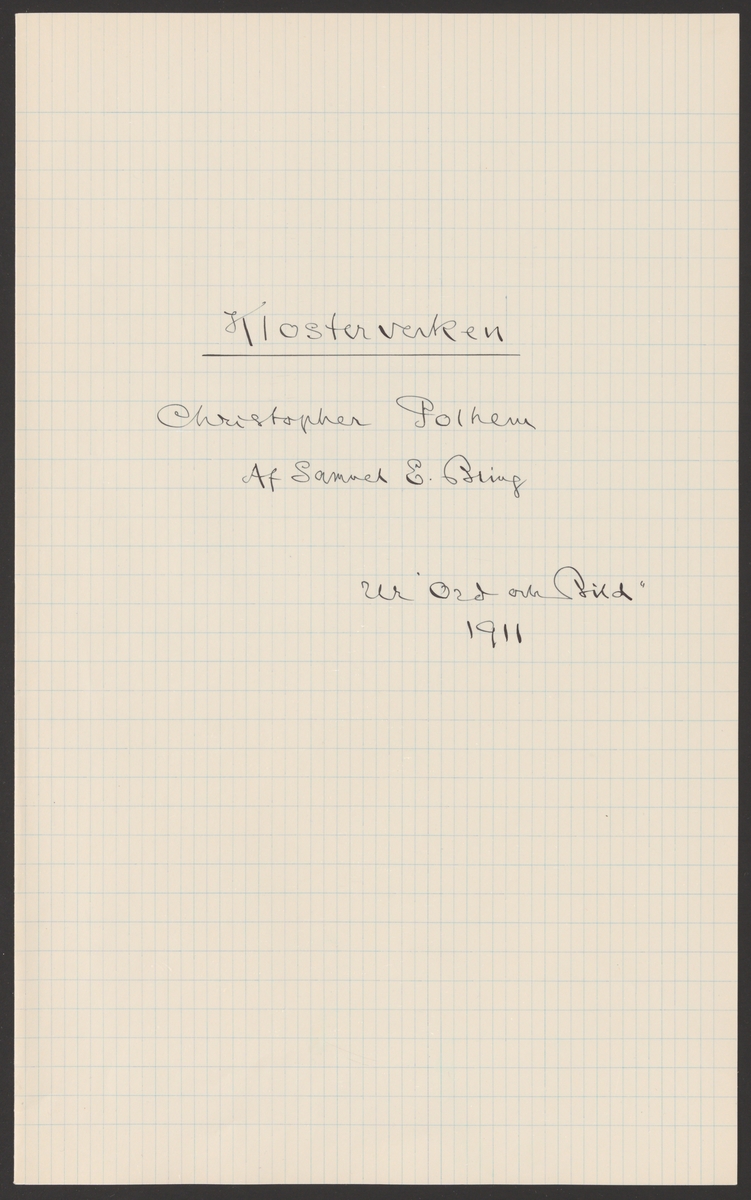 Klosterverken
Christopher Polhem
Af Samuel E. Bring
Ur "Ord och Bild"
1911